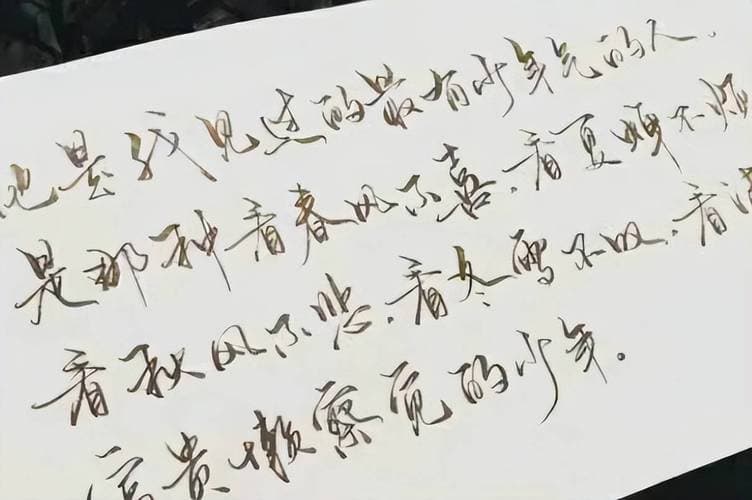 他是我见过的最有少年气的人.
是那种看春风不喜.看夏蝉不烦
看秋风不悲.看冬雪不叹.看满
富贵懒察觉的少年。